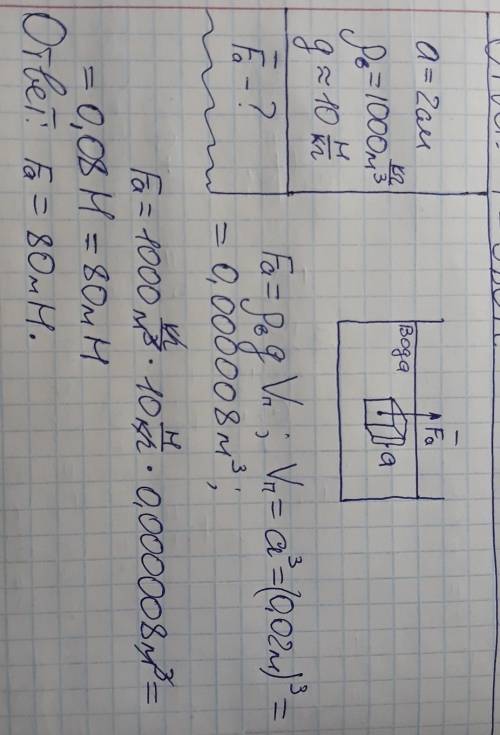 a = 2см
ρв = 1000 кг/м³
g ≈ 10 Н/кг
F̅a - ?
F̅a
Вода
a
Fa = ρв g Vп ; Vп = a³ = (0,02м)³ =
= 0,000008 м³;
Fa = 1000 кг/м³ · 10 Н/кг · 0,000008 м³ =
= 0,08 Н = 80 мН
Ответ: Fa = 80 мН.